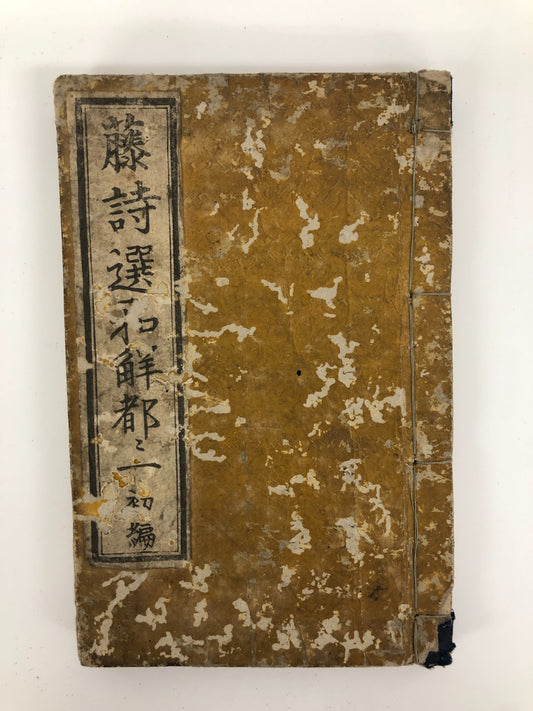 藤詩選和解都〻一初編